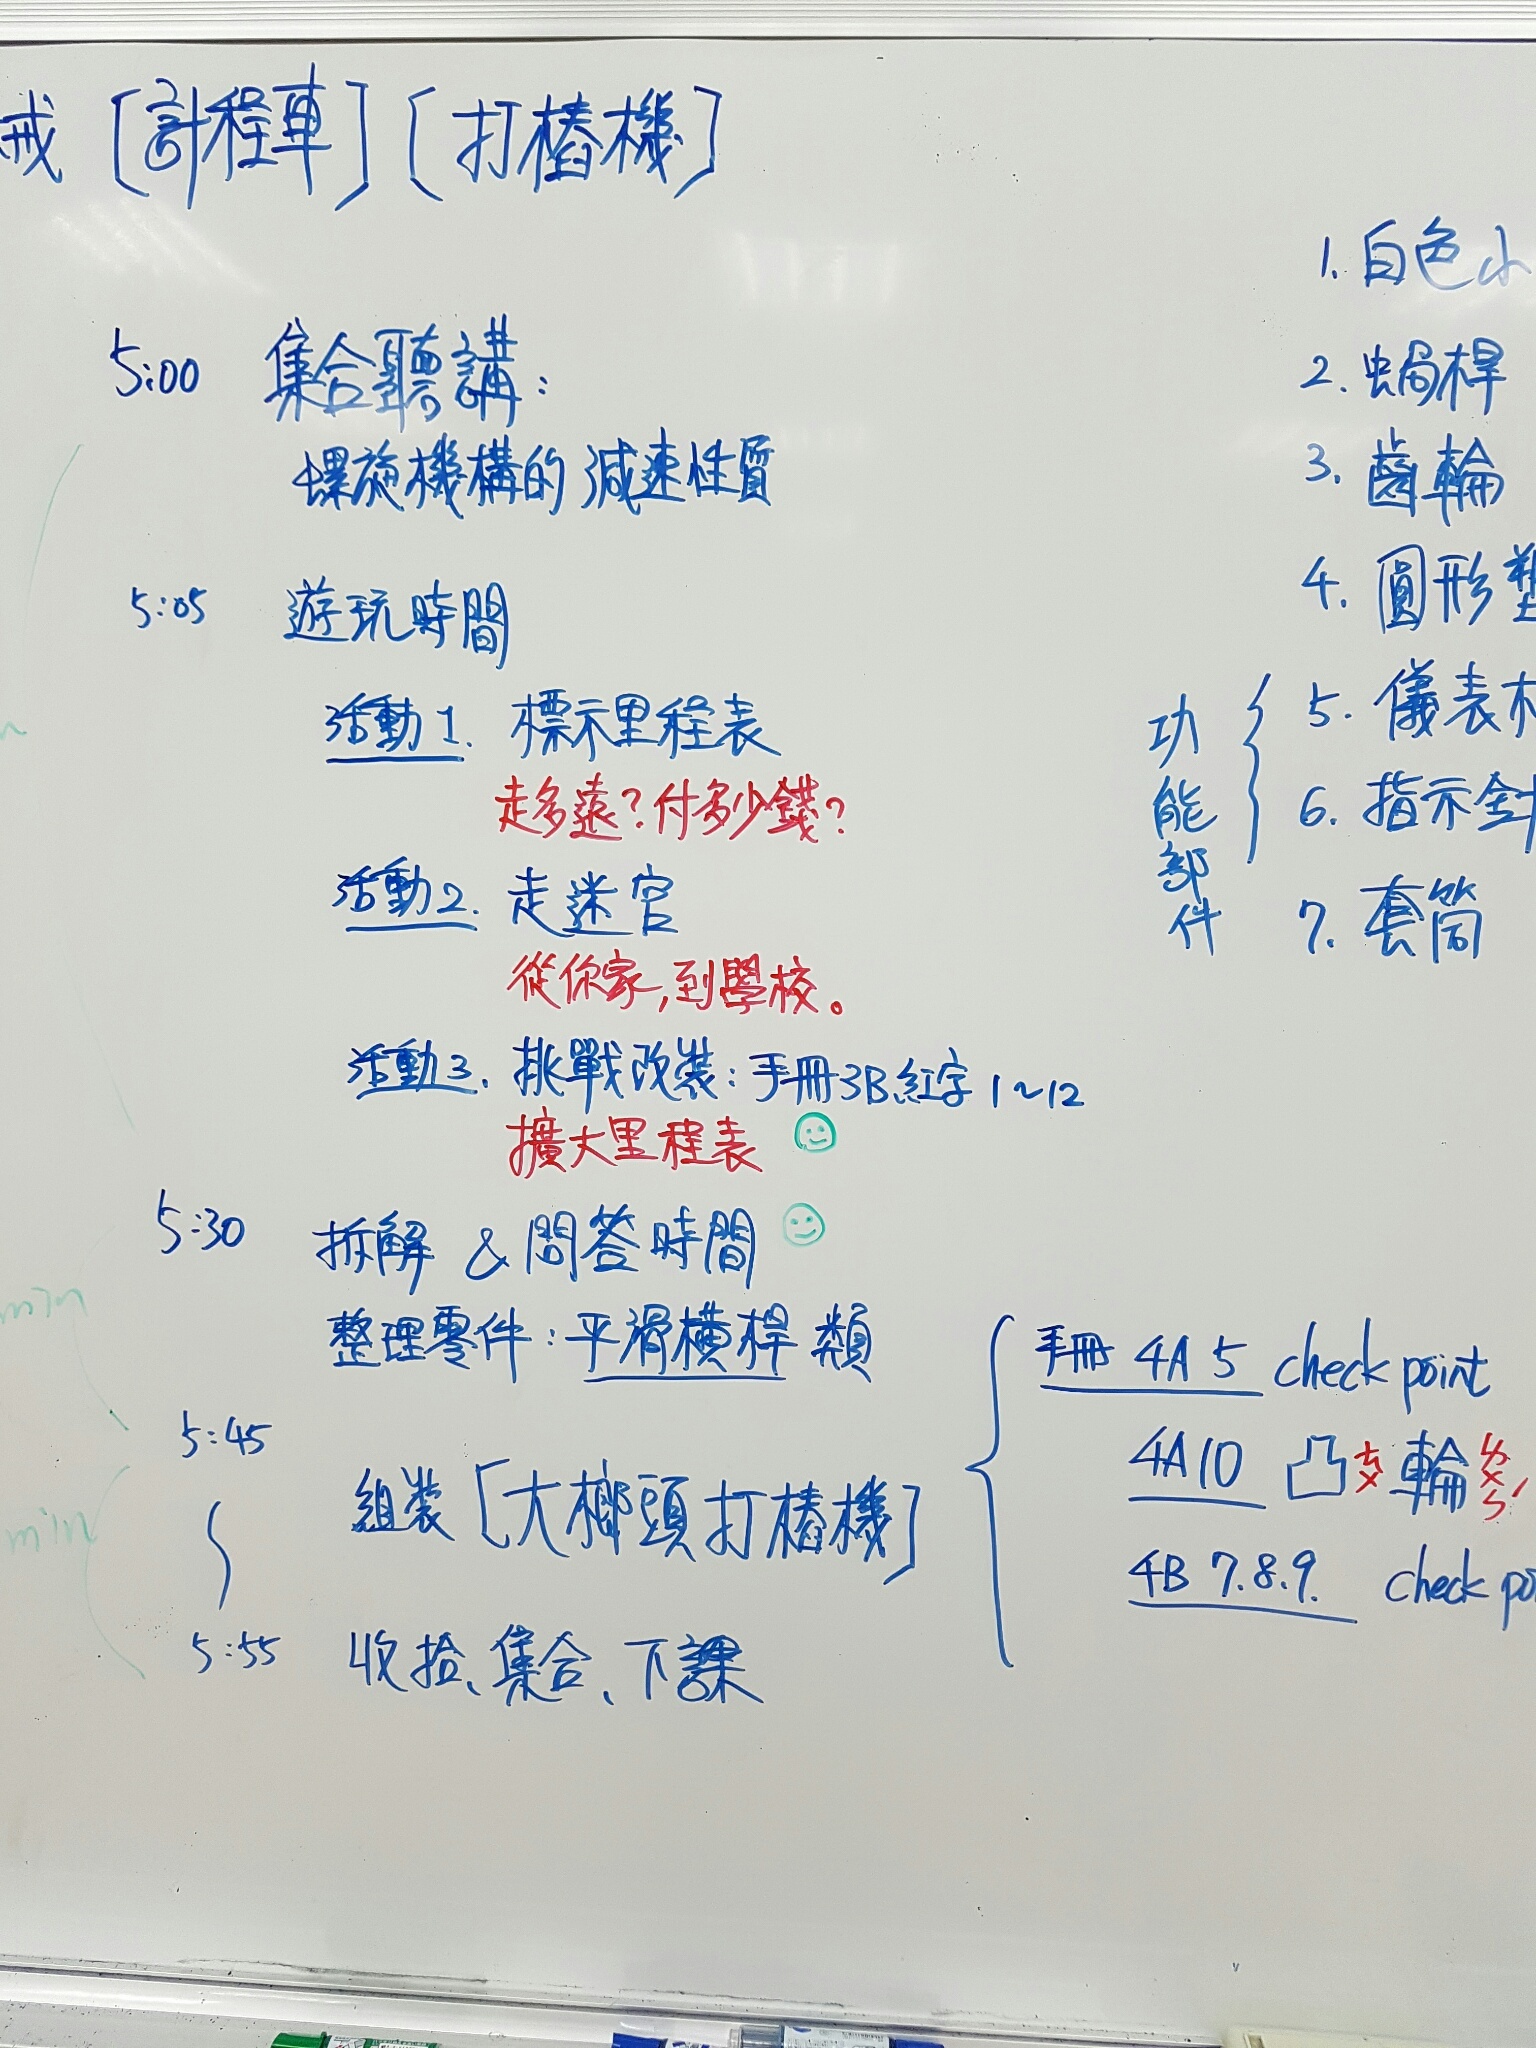 戒 [計程車] [打樁機]
5:00 集合聽講:
螺旋機構的減速性質
5:05 遊玩時間
活動1. 標示里程表
走多遠?付多少錢?
活動2. 走迷宮
從你家,到學校。
活動3. 挑戰改裝:手冊3B紅字1~12
擴大里程表
5:30 拆解 & 問答時間
整理零件:平滑橫桿類
5:45
組裝 [大榔頭打樁機]
5:55 收拾、集合、下課
1. 白色小
2. 蝸桿
3. 齒輪
4. 圓形塑
功能部件
5. 儀表
6. 指示針
7. 套筒
手冊 4A 5 check point
4A10 凸ㄊㄨ輪ㄌㄨㄣˊ
4B 7.8.9. check po
min
min